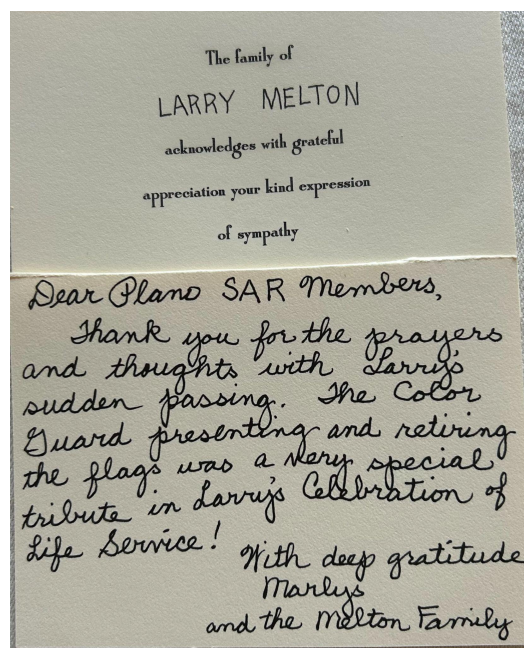 The family of
LARRY MELTON
acknowledges with grateful
appreciation your kind expression
of sympathy
Dear Plano SAR Members,
Thank you for the prayers
and thoughts with Larry's
sudden passing. The Color
Guard presenting and retiring
the flags was a very special
tribute in Larry's Celebration of
Life Service!
With deep gratitude
Marlys
and the Melton Family